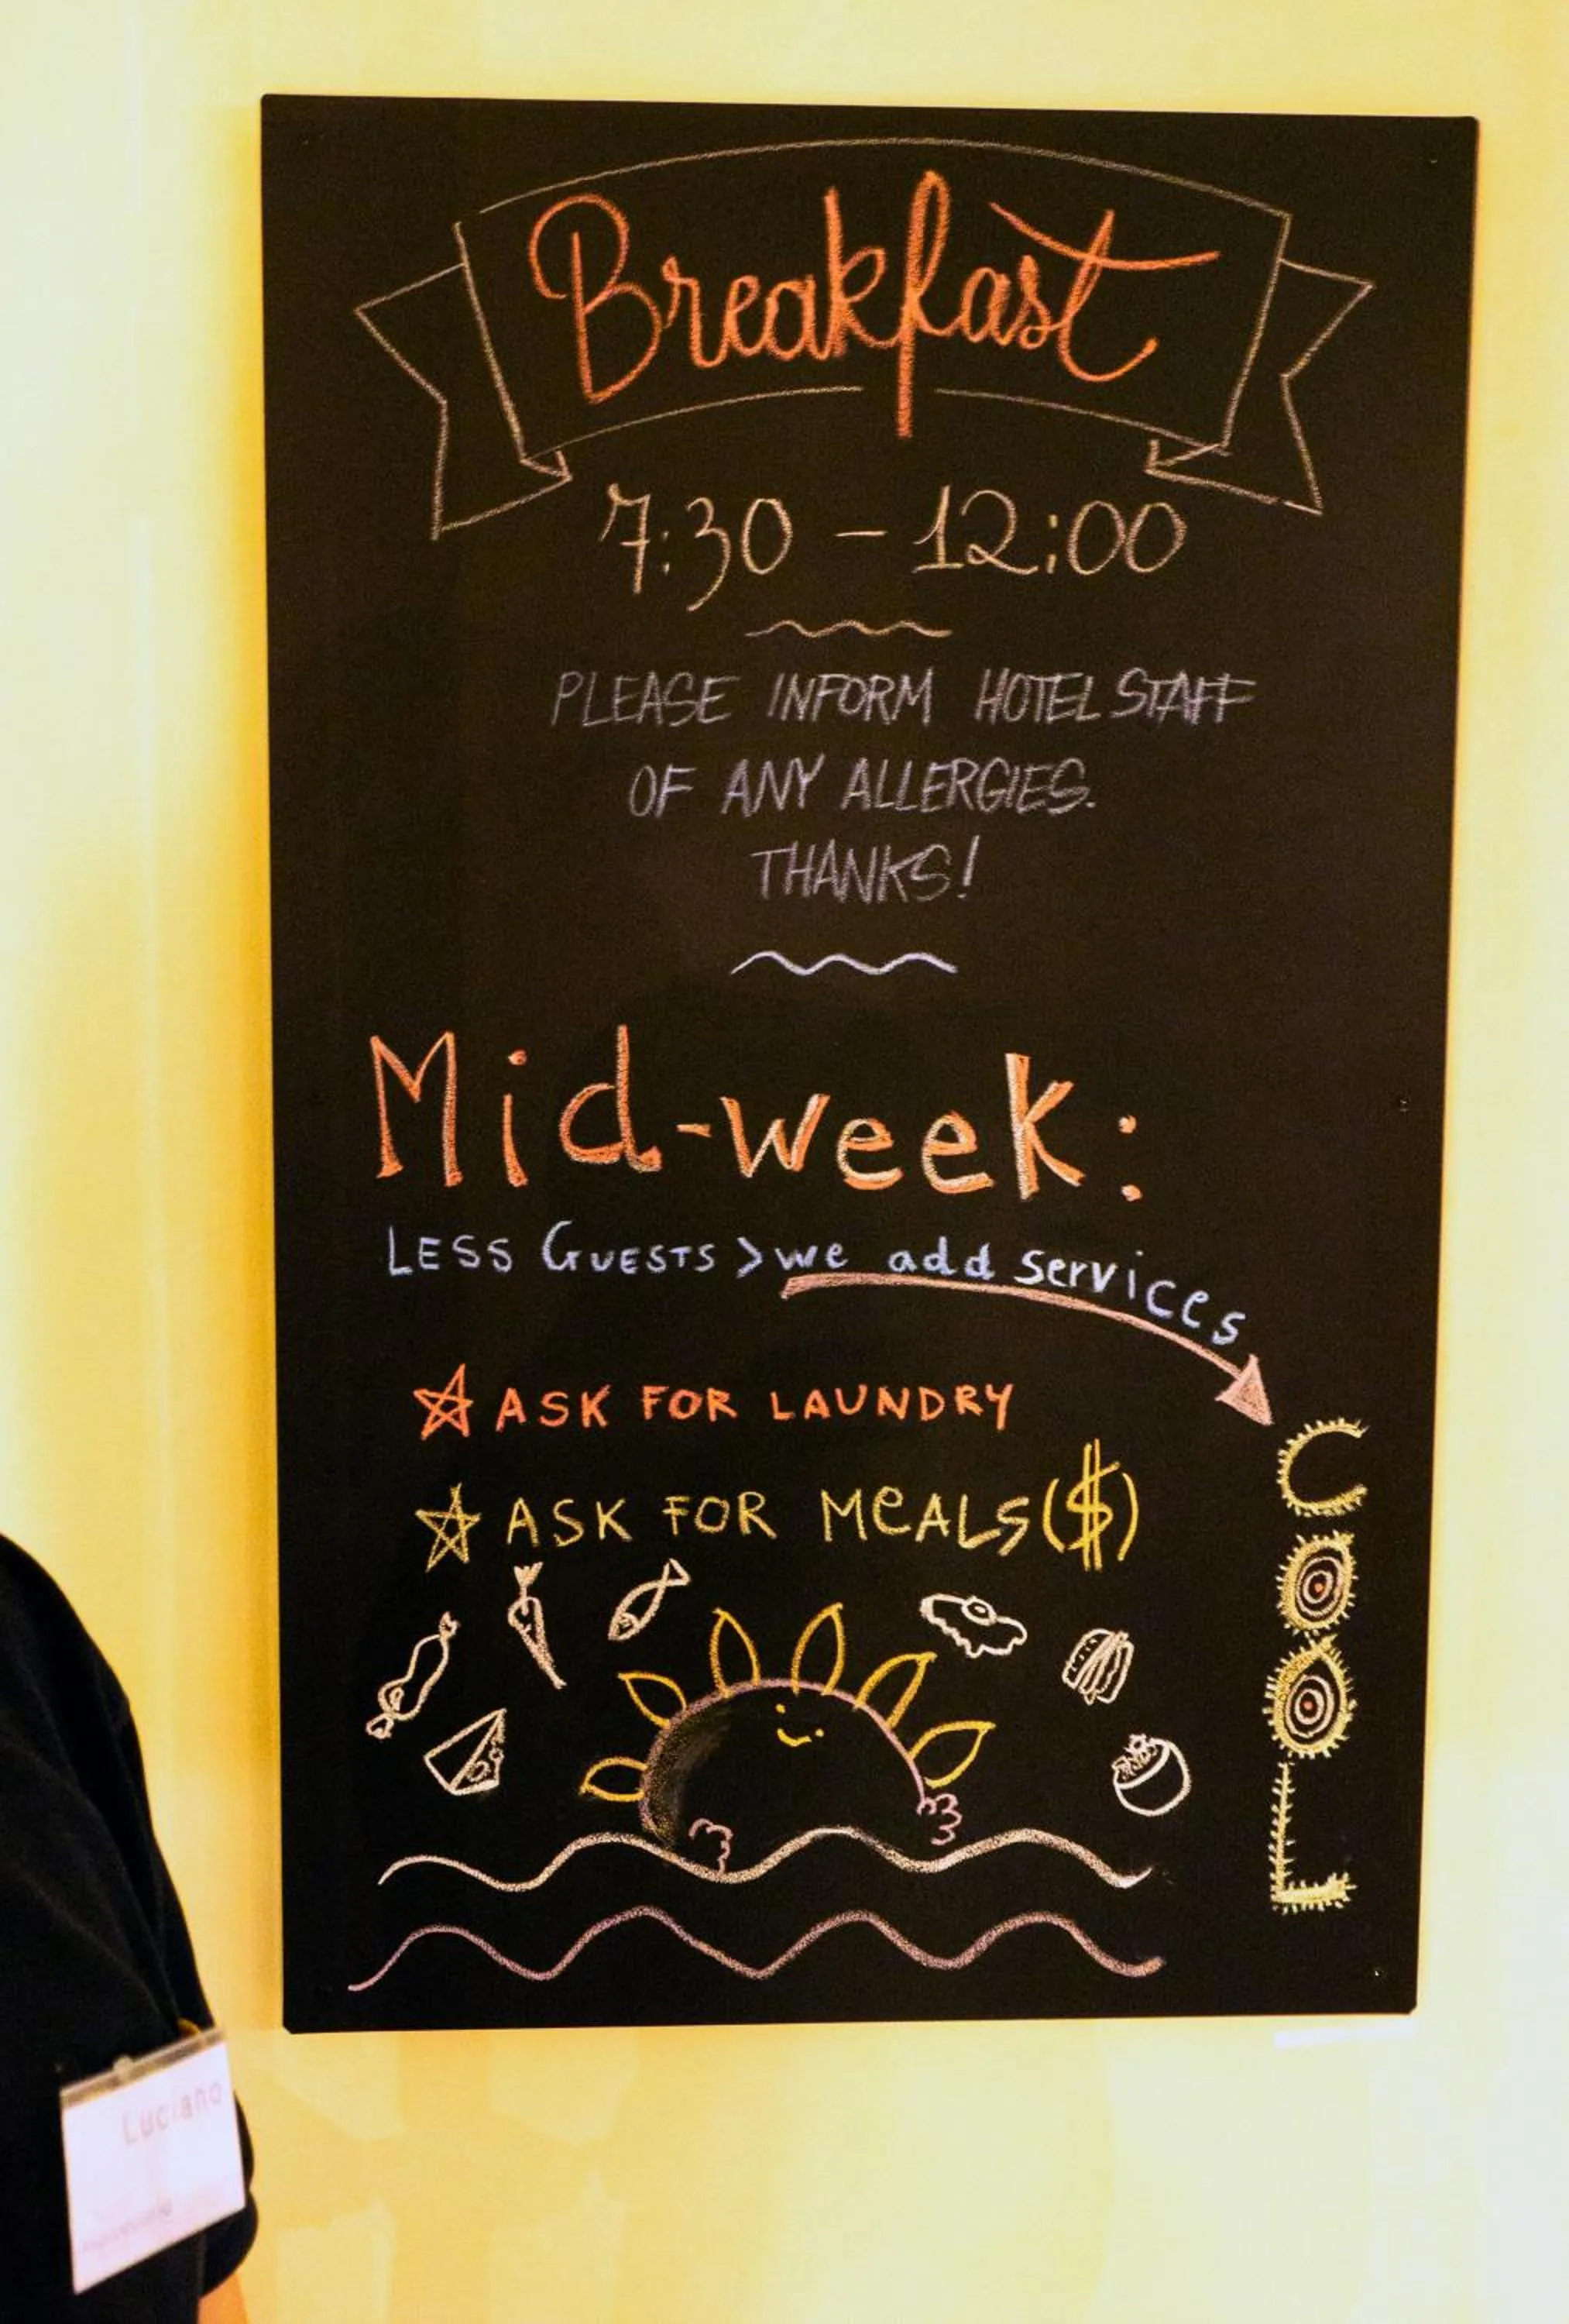 Breakfast
7:30 - 12:00
PLEASE INFORM HOTEL STAFF
OF ANY ALLERGIES.
THANKS!
Mid-week:
LESS GUESTS > we add services
ASK FOR LAUNDRY
ASK FOR MeALS ($)
COOL
Luciano